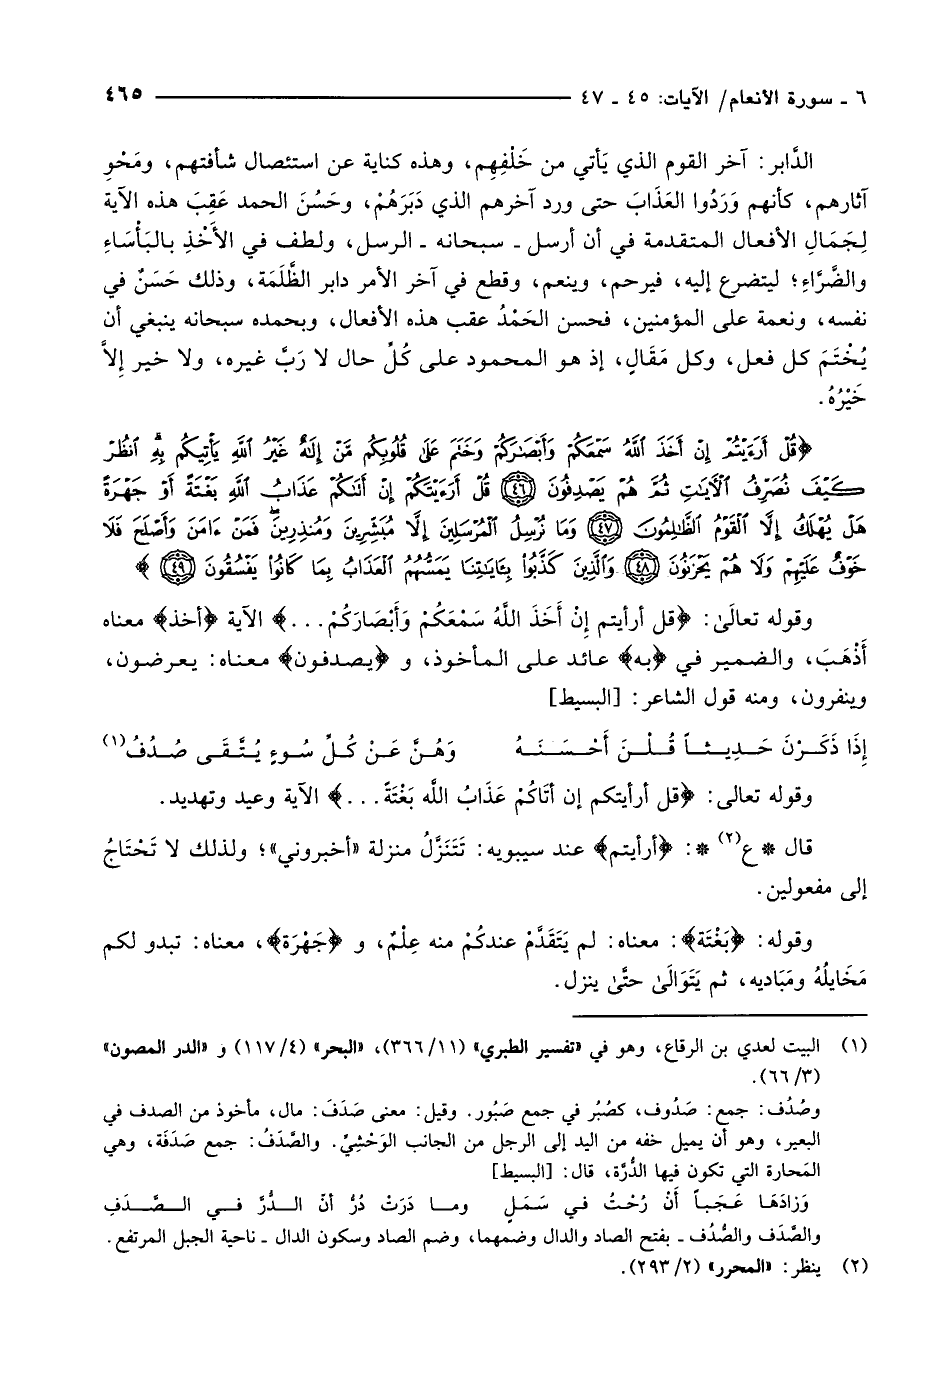 ٦ ـ سورة الأنعام/ الآيات: ٤٥ ـ ٤٧ ٤٦٥
الدَّابر: آخر القوم الذي يَأتي من خَلْفِهِم، وهذه كناية عن استئصال شأفتهم، ومَحْوِ
آثارهم، كأنهم وَرَدُوا العَذَابَ حتى ورد آخرهم الذي دَبَرَهُمْ، وحَسُنَ الحمد عَقِبَ هذه الآية
لِجَمَالِ الأفعال المتقدمة في أن أرسل ـ سبحانه ـ الرسل، ولطف في الأَخْذِ بالبَأْسَاءِ
والضَّرَّاءِ؛ ليتضرع إليه، فيرحم، وينعم، وقطع في آخر الأمر دابر الظَّلَمَة، وذلك حَسَنٌ في
نفسه، ونعمة على المؤمنين، فحسن الحَمْدُ عقب هذه الأفعال، وبحمده سبحانه ينبغي أن
يُخْتَمَ كل فعل، وكل مَقَالٍ، إذ هو المحمود على كُلِّ حال لا رَبَّ غيره، ولا خير إِلاَّ
خَيْرُهُ.
﴿قُلْ أَرَءَيْتُمْ إِنْ أَخَذَ ٱللَّهُ سَمْعَكُمْ وَأَبْصَٰرَكُمْ وَخَتَمَ عَلَىٰ قُلُوبِكُم مَّنْ إِلَٰهٌ غَيْرُ ٱللَّهِ يَأْتِيكُم بِهِۗ ٱنظُرْ
كَيْفَ نُصَرِّفُ ٱلْأَيَٰتِ ثُمَّ هُمْ يَصْدِفُونَ ﴿٤٦﴾ قُلْ أَرَءَيْتَكُمْ إِنْ أَتَىٰكُمْ عَذَابُ ٱللَّهِ بَغْتَةً أَوْ جَهْرَةً
هَلْ يُهْلَكُ إِلَّا ٱلْقَوْمُ ٱلظَّٰلِمُونَ ﴿٤٧﴾ وَمَا نُرْسِلُ ٱلْمُرْسَلِينَ إِلَّا مُبَشِّرِينَ وَمُنذِرِينَۖ فَمَنْ ءَامَنَ وَأَصْلَحَ فَلَا
خَوْفٌ عَلَيْهِمْ وَلَا هُمْ يَحْزَنُونَ ﴿٤٨﴾ وَٱلَّذِينَ كَذَّبُوا۟ بِـَٔايَٰتِنَا يَمَسُّهُمُ ٱلْعَذَابُ بِمَا كَانُوا۟ يَفْسُقُونَ ﴿٤٩﴾ ﴾
وقوله تعالَىٰ: ﴿قل أرأيتم إنْ أَخَذَ اللَّهُ سَمْعَكُمْ وَأَبْصَارَكُمْ...﴾ الآية ﴿أخذ﴾ معناه
أَذْهَبَ، والضمير في ﴿به﴾ عائد على المأخوذ، و ﴿يصدفون﴾ معناه: يعرضون،
وينفرون، ومنه قول الشاعر: [البسيط]
إِذَا ذَكَرْنَ حَدِيثاً قُلْنَ أَحْسَنَهُ وَهُنَّ عَنْ كُلِّ سُوءٍ يُتَّقَى صُدُفُ(١)
وقوله تعالى: ﴿قل أرأيتكم إن أتَاكُمْ عَذَابُ اللَّه بَغْتَةً...﴾ الآية وعيد وتهديد.
قال * ع(٢) *: ﴿أرأيتم﴾ عند سيبويه: تَتَنَزَّلُ منزلة «أخبروني»؛ ولذلك لا تَحْتَاجُ
إلى مفعولين.
وقوله: ﴿بَغْتَة﴾: معناه: لم يَتَقَدَّمْ عندكُمْ منه عِلْمٌ، و ﴿جَهْرَة﴾، معناه: تبدو لكم
مَخَايلُهُ ومَبَاديه، ثم يَتَوَالَىٰ حتَّىٰ ينزل.
(١) البيت لعدي بن الرقاع، وهو في «تفسير الطبري» (٣٦٦/١١)، «البحر» (١١٧/٤) و «الدر المصون»
(٦٦/٣).
وصُدُف: جمع: صَدُوف، كصُبُر في جمع صَبُور. وقيل: معنى صَدَفَ: مال، مأخوذ من الصدف في
البعير، وهو أن يميل خفه من اليد إلى الرجل من الجانب الوَحْشِيِّ. والصَّدَفُ: جمع صَدَفَة، وهي
المَحارة التي تكون فيها الدُّرَّة، قال: [البسيط]
وَزادَهَا عَجَباً أَنْ رُحْتُ في سَمَلٍ وما دَرَتْ دُرُّ أنّ الدُّرَّ في الصَّدَفِ
والصَّدَف والصُّدُف ـ بفتح الصاد والدال وضمهما، وضم الصاد وسكون الدال ـ ناحية الجبل المرتفع.
(٢) ينظر: «المحرر» (٢٩٣/٢).